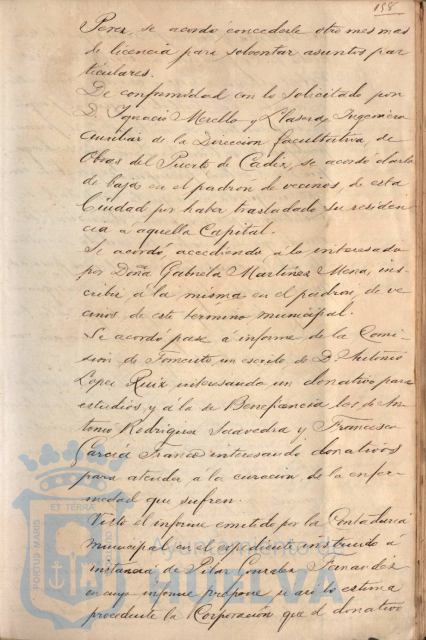 158
Perez, se acordó concederle otro mes mas
de licencia para solventar asuntos par
ticulares.
De conformidad con lo solicitado por
D. Ignacio Merello y Llasera, Ingeniero
auxiliar de la Direccion facultativa de
Obras del Puerto de Cadiz, se acordo darlo
de baja en el padron de vecinos de esta
Ciudad por haber trasladado su residen
cia a aquella Capital.
Se acordó, accediendo á lo interesado
por Doña Gabriela Martinez Mena, ins
cribir á la misma en el padron de ve
cinos de este termino municipal.
Se acordó pase á informe de la Comi
sion de Fomento un escrito de D. Antonio
Lopez Ruiz interesando un donativo para
estudios, y á la de Beneficencia los de An
tonio Rodriguez Saavedra y Francisco
Garcia Franco interesando donativos
para atender á la curacion de la enfer
medad que sufren.
Visto el informe emitido por la Contaduria
municipal en el expediente instruido á
instancia de Pilar Gonzalez Fernandez
en cuyo informe propone si asi lo estima
procedente la Corporación que el donativo
PORTUS MARIS
ET TERRÆ
CUSTODIA
Ayuntamiento de
HUELVA